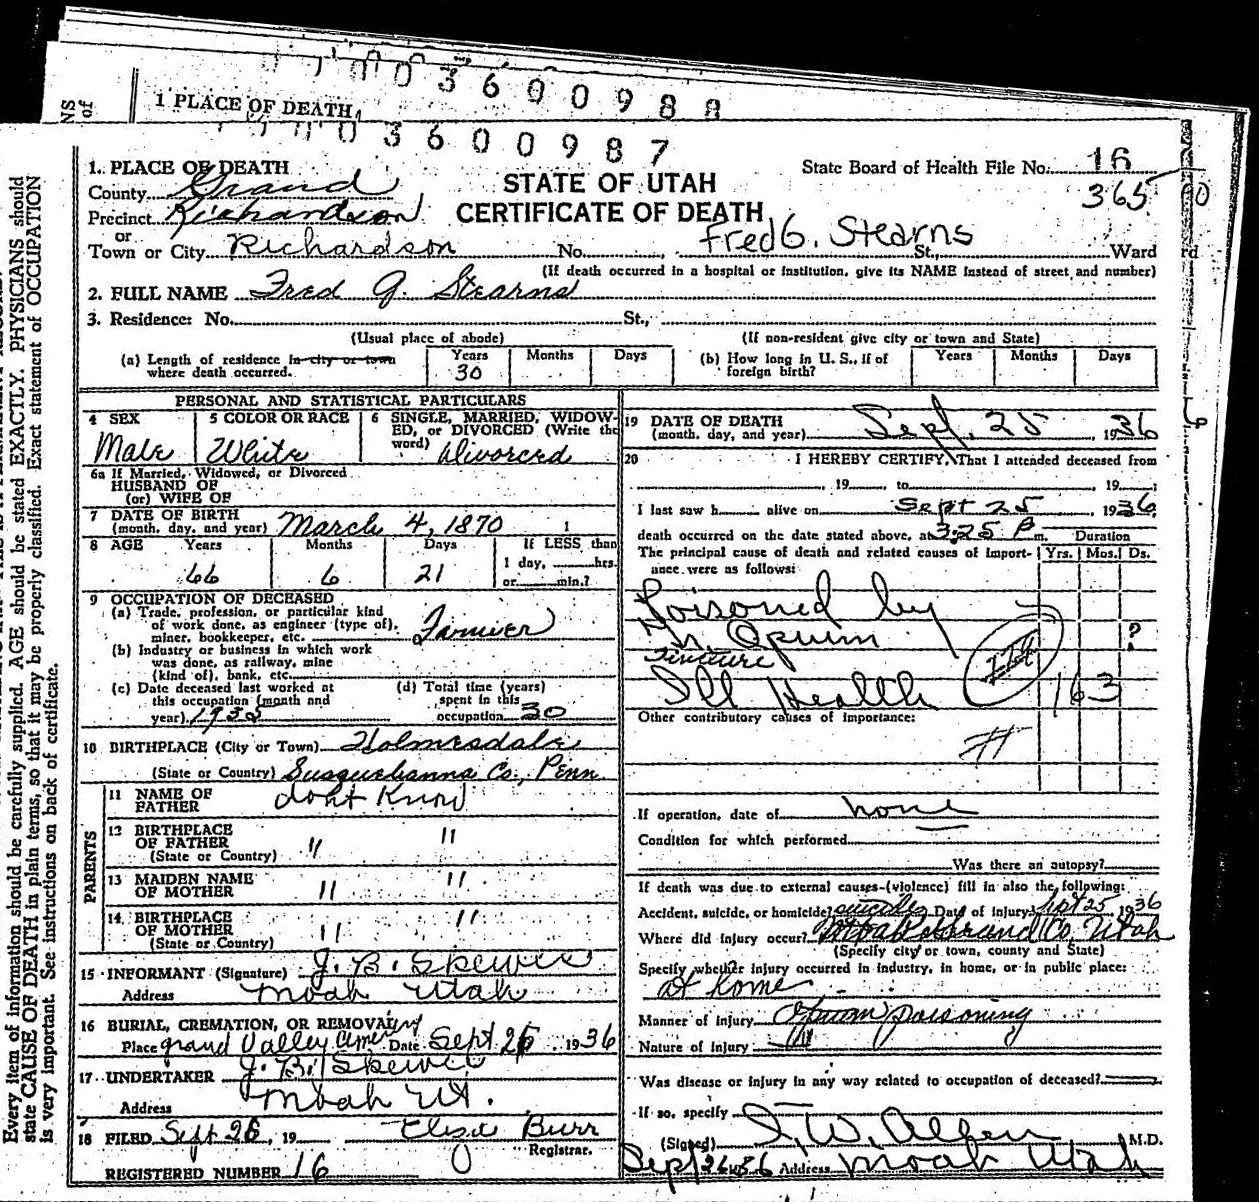 3 6 0 0 9 8 8
1 PLACE OF DEATH
0 3 6 0 0 9 8 7
Every item of information should be carefully supplied. AGE should be stated EXACTLY. PHYSICIANS should
state CAUSE OF DEATH in plain terms, so that it may be properly classified. Exact statement of OCCUPATION
is very important. See instructions on back of certificate.
1. PLACE OF DEATH
County Grand
Precinct Richardson
or
Town or City Richardson No. St., Ward
STATE OF UTAH
CERTIFICATE OF DEATH
State Board of Health File No. 16
365
Fred G. Stearns
(If death occurred in a hospital or institution, give its NAME instead of street and number)
2. FULL NAME Fred G. Stearns
3. Residence: No. St.,
(Usual place of abode) (If non-resident give city or town and State)
(a) Length of residence in city or town where death occurred. Years 30 Months Days
(b) How long in U. S., if of foreign birth? Years Months Days
PERSONAL AND STATISTICAL PARTICULARS
4 SEX Male
5 COLOR OR RACE White
6 SINGLE, MARRIED, WIDOWED, or DIVORCED (Write the word) Divorced
6a If Married, Widowed, or Divorced
HUSBAND OF
(or) WIFE OF
7 DATE OF BIRTH
(month, day, and year) March 4, 1870
8 AGE Years Months Days If LESS than
66 6 21 1 day, hrs.
or min.?
9 OCCUPATION OF DECEASED
(a) Trade, profession, or particular kind
of work done, as engineer (type of),
miner, bookkeeper, etc. Farmer
(b) Industry or business in which work
was done, as railway, mine
(kind of), bank, etc.
(c) Date deceased last worked at
this occupation (month and
year)
(d) Total time (years)
spent in this
occupation 30
10 BIRTHPLACE (City or Town) Holmesdale
(State or Country) Susquehanna Co., Penn.
PARENTS
11 NAME OF FATHER dont Know
12 BIRTHPLACE OF FATHER (State or Country) " "
13 MAIDEN NAME OF MOTHER " "
14 BIRTHPLACE OF MOTHER (State or Country) " "
15 INFORMANT (Signature) J. B. Skewes
Address Moab Utah
16 BURIAL, CREMATION, OR REMOVAL
Place Grand Valley Cemetery Date Sept 26 1936
17 UNDERTAKER J. B. Skewes
Address Moab Ut.
18 FILED Sept 26, 19 Burr
Registrar.
REGISTERED NUMBER 16
19 DATE OF DEATH
(month, day, and year) Sept. 25, 1936
20 I HEREBY CERTIFY, That I attended deceased from
, 19 , to , 19 ;
I last saw h alive on Sept 25, 1936,
death occurred on the date stated above, at 3:25 P m. Duration
The principal cause of death and related causes of importance were as follows: Yrs. Mos. Ds.
Poisoned by
Opium ?
Tincture
Ill Health 163
Other contributory causes of importance:
If operation, date of none
Condition for which performed
Was there an autopsy?
If death was due to external causes (violence) fill in also the following:
Accident, suicide, or homicide? suicide Date of injury Sept 25, 1936
Where did injury occur? Moab Grand Co. Utah
(Specify city or town, county and State)
Specify whether injury occurred in industry, in home, or in public place:
at home
Manner of injury Opium poisoning
Nature of injury
Was disease or injury in any way related to occupation of deceased?
If so, specify
(Signed) I. W. Allen M.D.
Sept 26 1936 Address Moab Utah